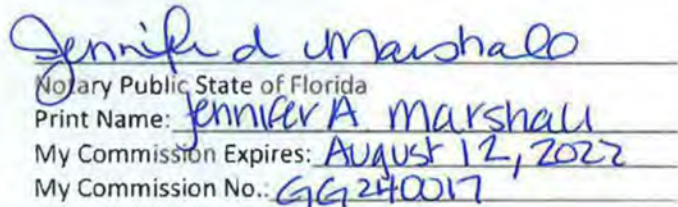 Jennifer A Marshall
Notary Public State of Florida
Print Name: Jennifer A Marshall
My Commission Expires: August 12, 2022
My Commission No.: GG240017